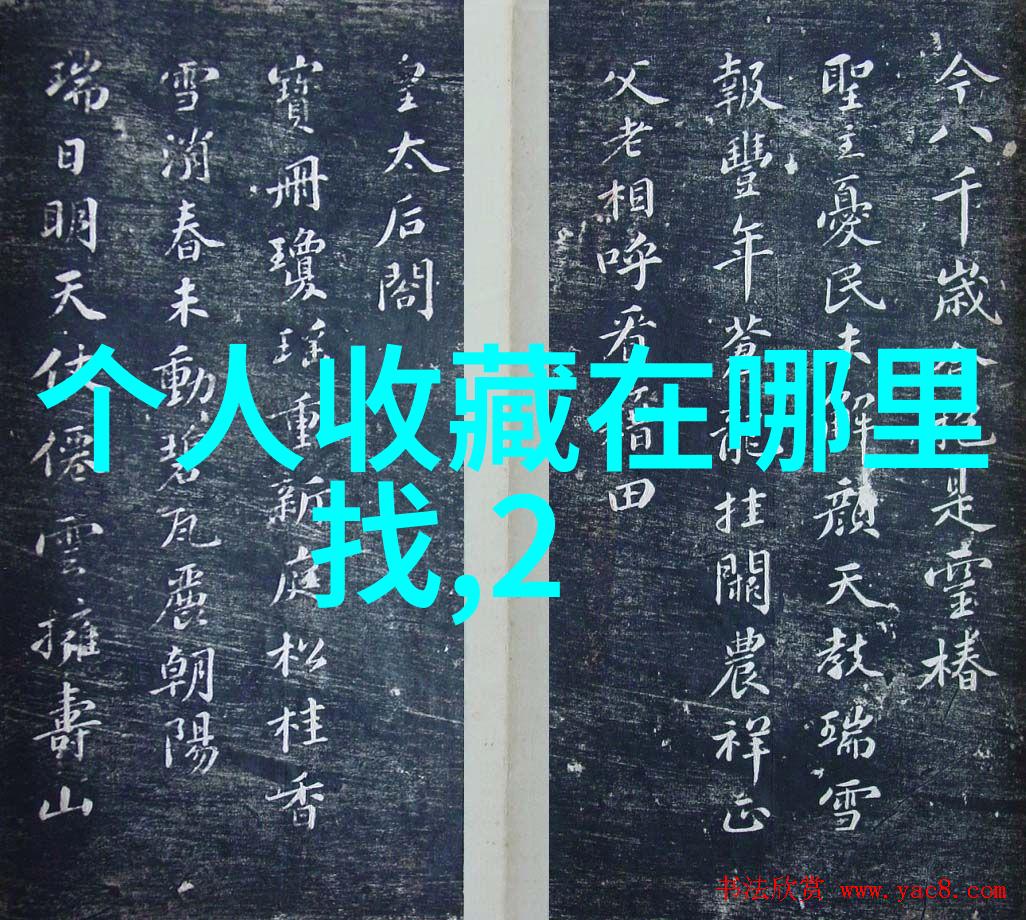 今八千歲是靈椿
聖主憂民未解顏天教瑞雪
報豐年蒼龍挂闕農祥正
父老相呼看田
皇太后閣
寶冊瓊瑤重新庭松桂香
雪消春未動碧瓦麗朝陽
瑞日明天仗僊雲擁壽山
个人收藏在哪里
找,2
书法欣赏 www.yac8.com